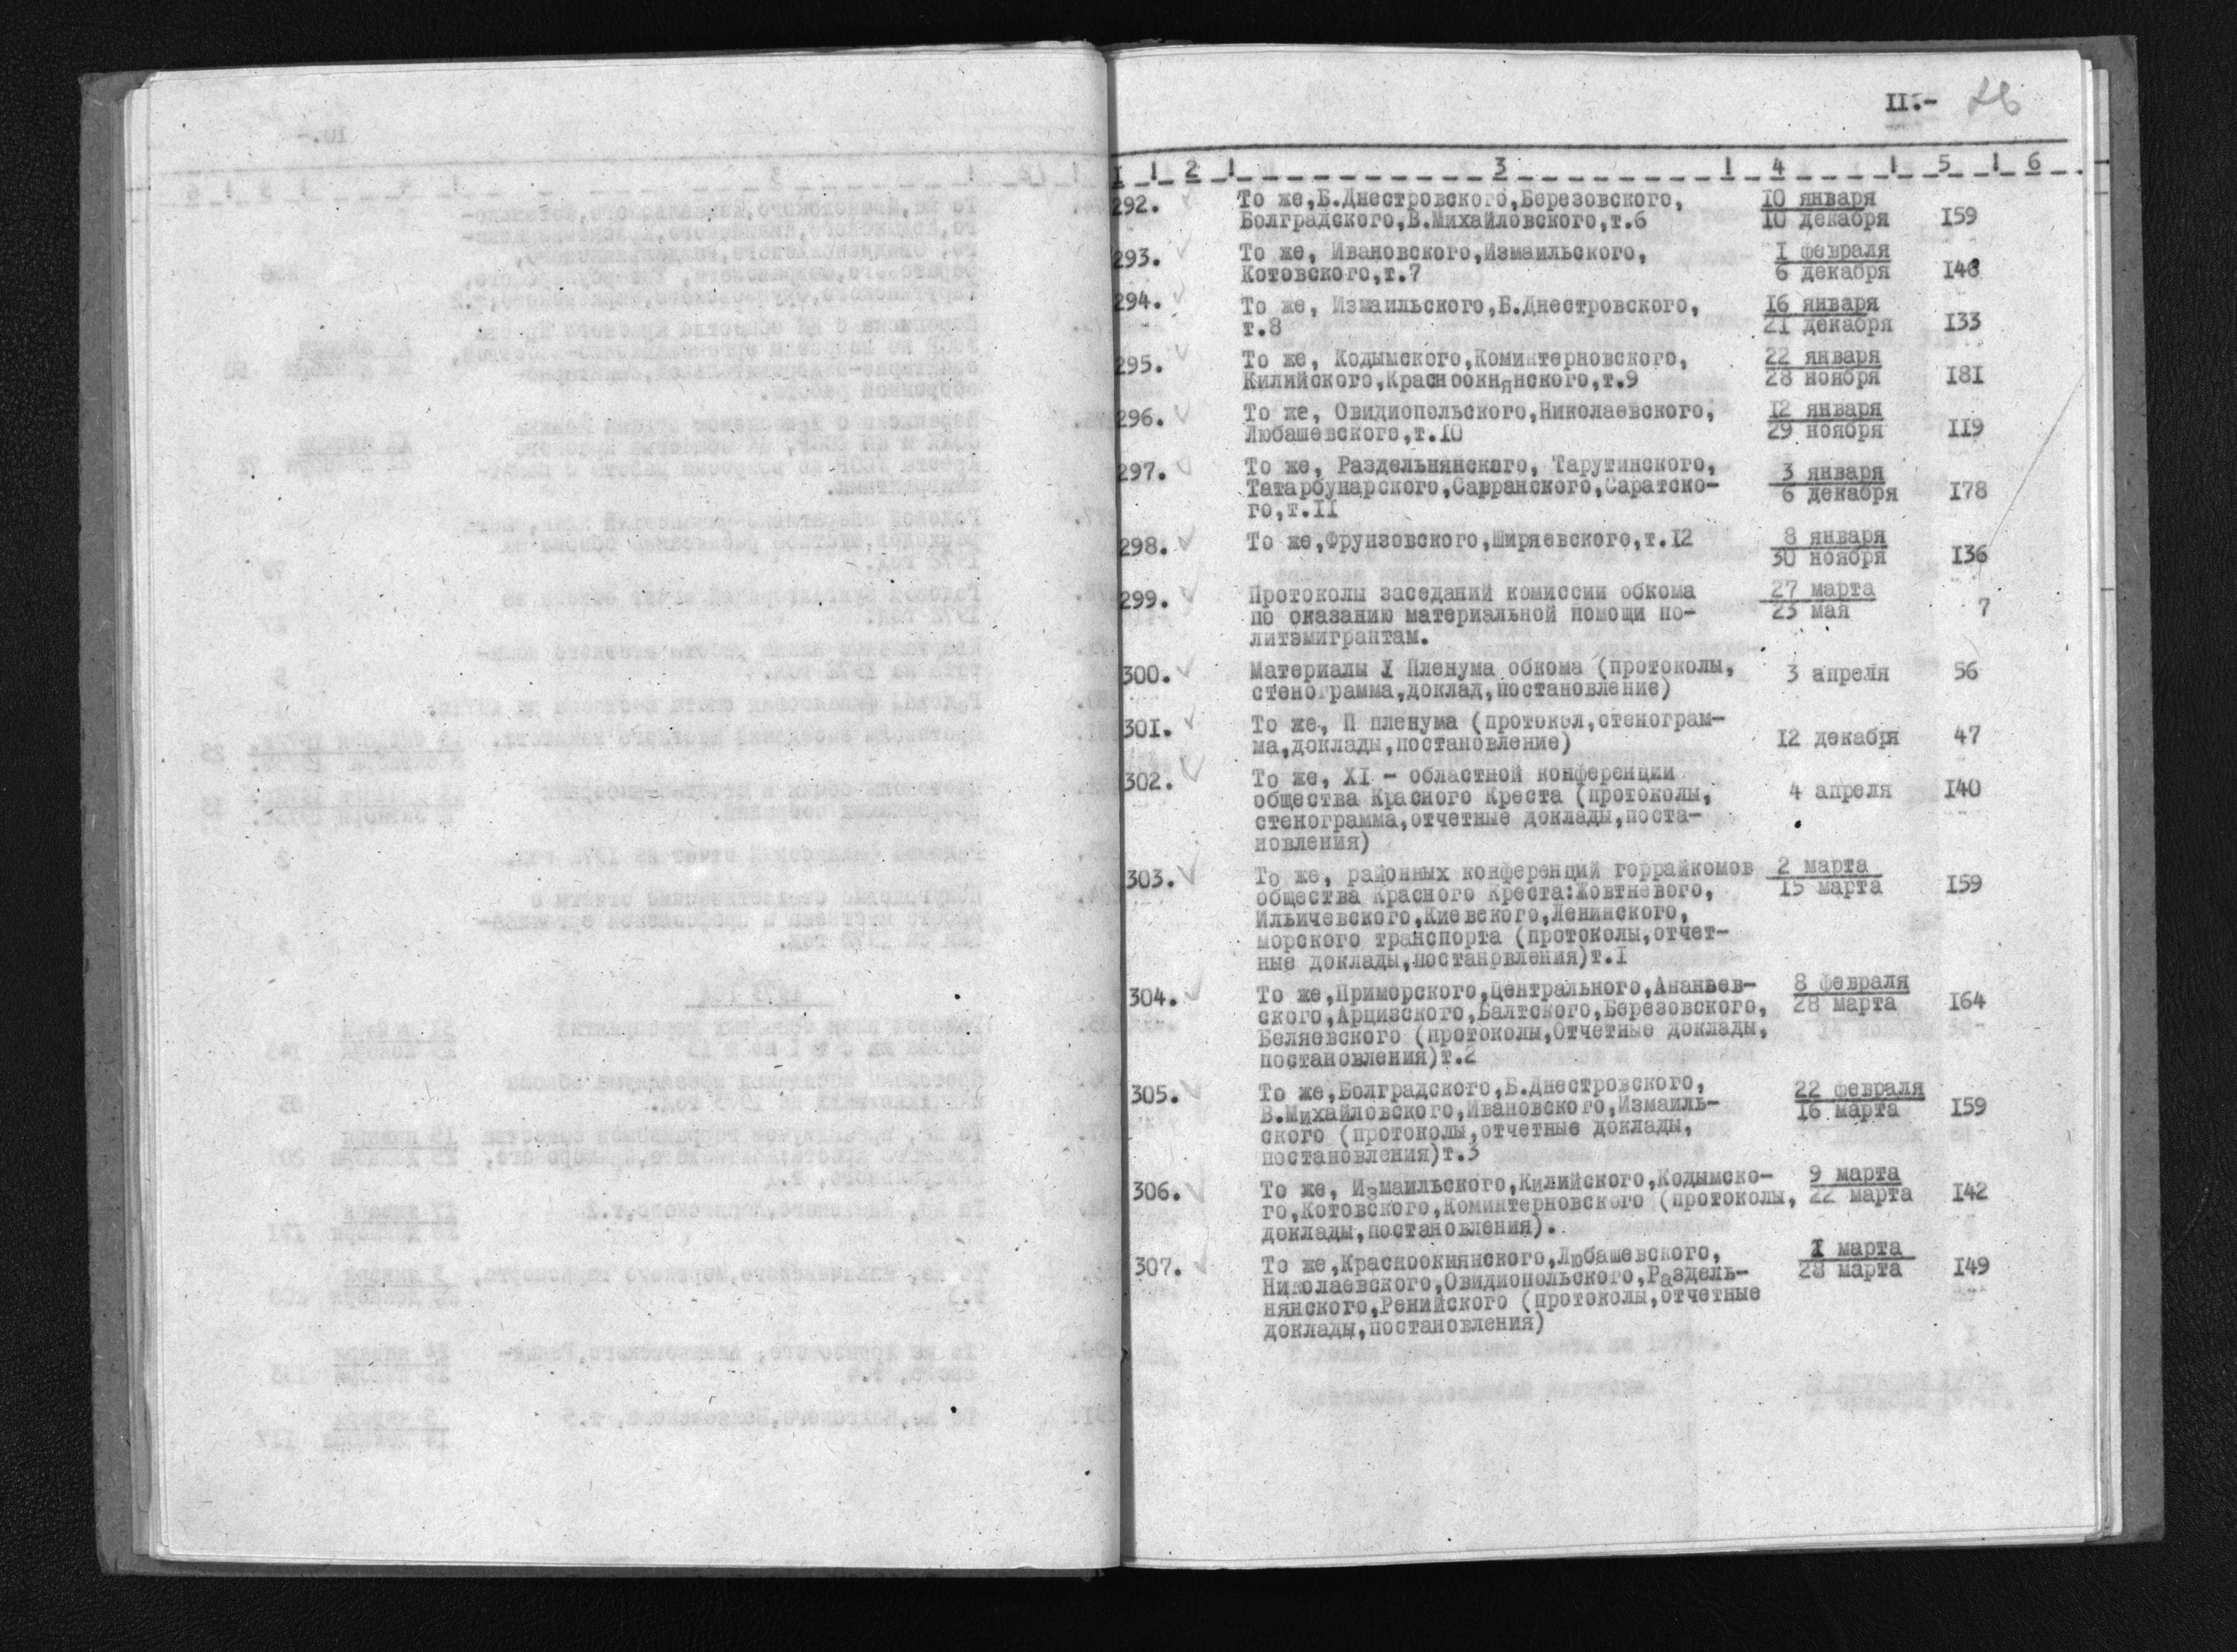 II.- 26
I 1 2 1 3 1 4 1 5 1 6
292. То же,Б.Днестровского,Березовского, 10 января
Болградского,В.Михайловского,т.6 10 декабря I59
293. То же, Ивановского,Измаильского, I февраля
Котовского,т.7 6 декабря
294. То же, Измаильского,Б.Днестровского, 16 января
т.8 21 декабря I33
295. То же, Кодымского,Коминтерновского, 22 января
Килийского,Красноокнянского,т.9 28 ноября I8I
296. То же, Овидиопольского,Николаевского, 12 января
Любашевского,т.IO 29 ноября II9
297. То же, Раздельнянского, Тарутинского, 3 января
Татарбунарского,Савранского,Саратско- 6 декабря I78
го,т.II
298. То же,Фрунзовского,Ширяевского,т.I2 8 января
30 ноября I36
299. Протоколы заседаний комиссии обкома 27 марта
по оказанию материальной помощи по- 23 мая 7
литэмигрантам.
300. Материалы I Пленума обкома (протоколы, 3 апреля 56
стенограмма,доклад,постановление)
30I. То же, П пленума (протокол,стенограм-
ма,доклады,постановление) 12 декабря 47
302. То же, XI - областной конференции
общества Красного Креста (протоколы, 4 апреля I40
стенограмма,отчетные доклады,поста-
новления)
303. То же, районных конференций горрайкомов 2 марта
общества Красного Креста:Жовтневого, I5 марта I59
Ильичевского,Киевского,Ленинского,
морского транспорта (протоколы,отчет-
ные доклады,постановления)т.I
304. То же,Приморского,Центрального,Ананьев- 8 февраля
ского,Арцизского,Балтского,Березовского, 28 марта I64
Беляевского (протоколы,Отчетные доклады,
постановления)т.2
305. То же,Болградского,Б.Днестровского, 22 февраля
В.Михайловского,Ивановского,Измаиль- I6 марта I59
ского (протоколы,отчетные доклады,
постановления)т.3
306. То же, Измаильского,Килийского,Кодымско- 9 марта
го,Котовского,Коминтерновского (протоколы, 22 марта I42
доклады,постановления).
307. То же,Красноокнянского,Любашевского, I марта
Николаевского,Овидиопольского,Раздель- 28 марта I49
нянского,Ренийского (протоколы,отчетные
доклады,постановления)